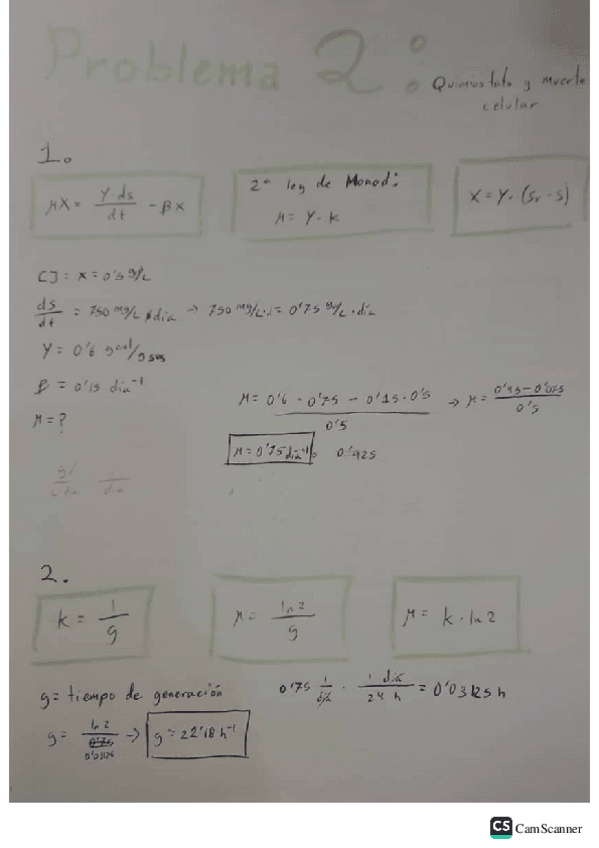 Problema 2:
Quimiostato y muerte
celular
1.
μX = Y·ds/dt - βX
2ª ley de Monod:
μ = Y·k
X = Y·(Sr - S)
[]: X = 0'5 g/L
ds/dt = 750 mg/L día → 750 mg/L·d = 0'75 g/L·día
Y = 0'6 g cel/g sus
β = 0'15 día⁻¹
μ = ?
μ = 0'6 · 0'75 - 0'15·0'5 / 0'5 → μ = 0'45 - 0'075 / 0'5
μ = 0'75 día⁻¹
0'925
2.
k = 1/g
μ = ln2/g
μ = k·ln2
g = tiempo de generación
0'75 1/día · 1 día/24 h = 0'03125 h
g = ln2/0'03125 → g = 22'18 h⁻¹
CS CamScanner